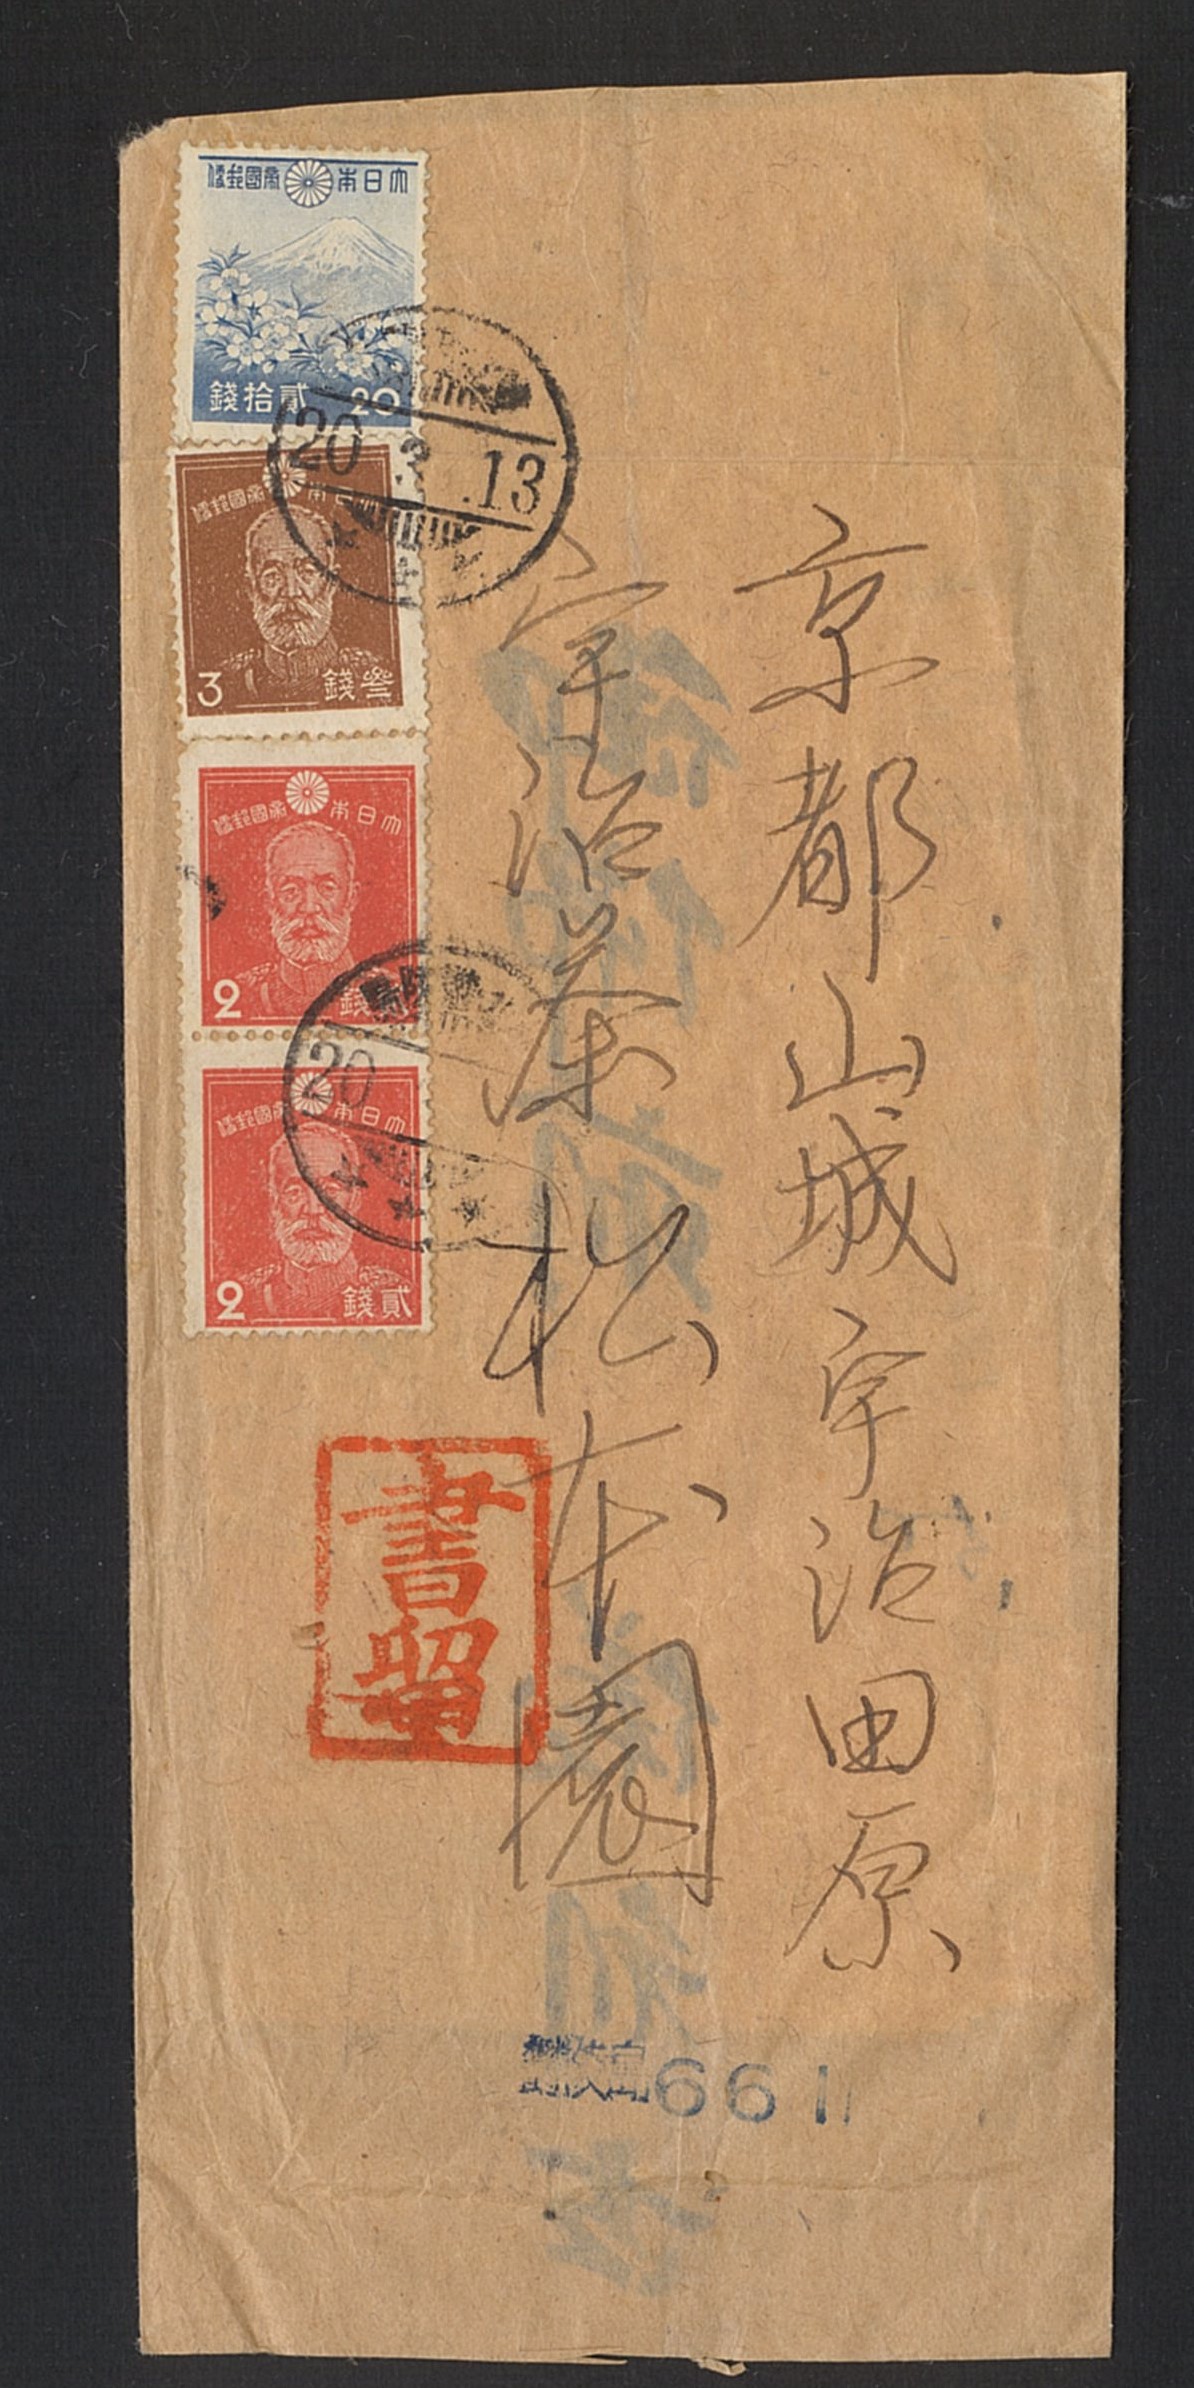 京都山城宇治田原
宇治茶松本園
大日本帝國郵便
貳拾錢
20
大日本帝國郵便
3
參錢
大日本帝國郵便
2
貳錢
大日本帝國郵便
2
貳錢
20 3 .13
20
書留
661